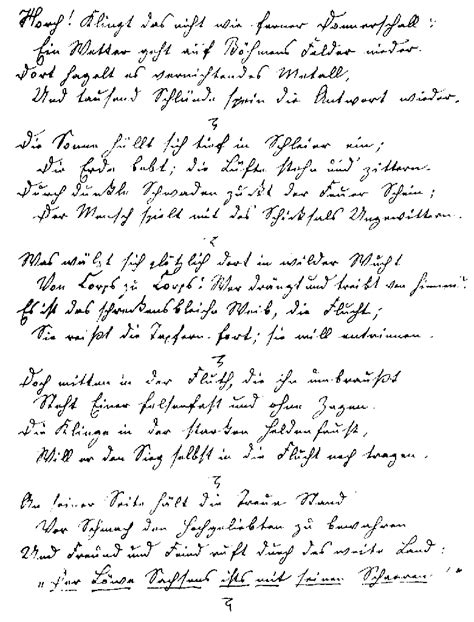 Horch! Klingt das nicht wie ferner Donnerschall?
Ein Wetter geht auf Böhmens Felder nieder.
Dort hagelt es vernichtendes Metall,
Und tausend Schlünde spein die Antwort wieder.
Die Sonne hüllt sich tief in Schleier ein;
Die Erde bebt; die Lüfte stehn und zittern.
Durch dunkle Schwaden zuckt der Feuer Schein;
Der Mensch spielt mit des Schicksals Ungewittern.
Was wälzt sich plötzlich dort in wilder Wucht
Von Corps zu Corps? Wer drängt und treibt von hinnen?
Es ist das schreckensbleiche Weib, die Flucht;
Sie reißt die Tapfern fort; sie will entrinnen.
Doch mitten in der Fluth, die ihn umbraußt
Steht Einer felsenfest und ohne Zagen.
Die Klinge in der starken Heldenfaust,
Will er den Sieg selbst in die Flucht noch tragen.
An seiner Seite hält die Treue Stand
Vor Schmach den Hochgeliebten zu bewahren
Und Freund und Feind ruft durch das weite Land:
„Der Löwe Sachsens ists mit seinen Schaaren!"